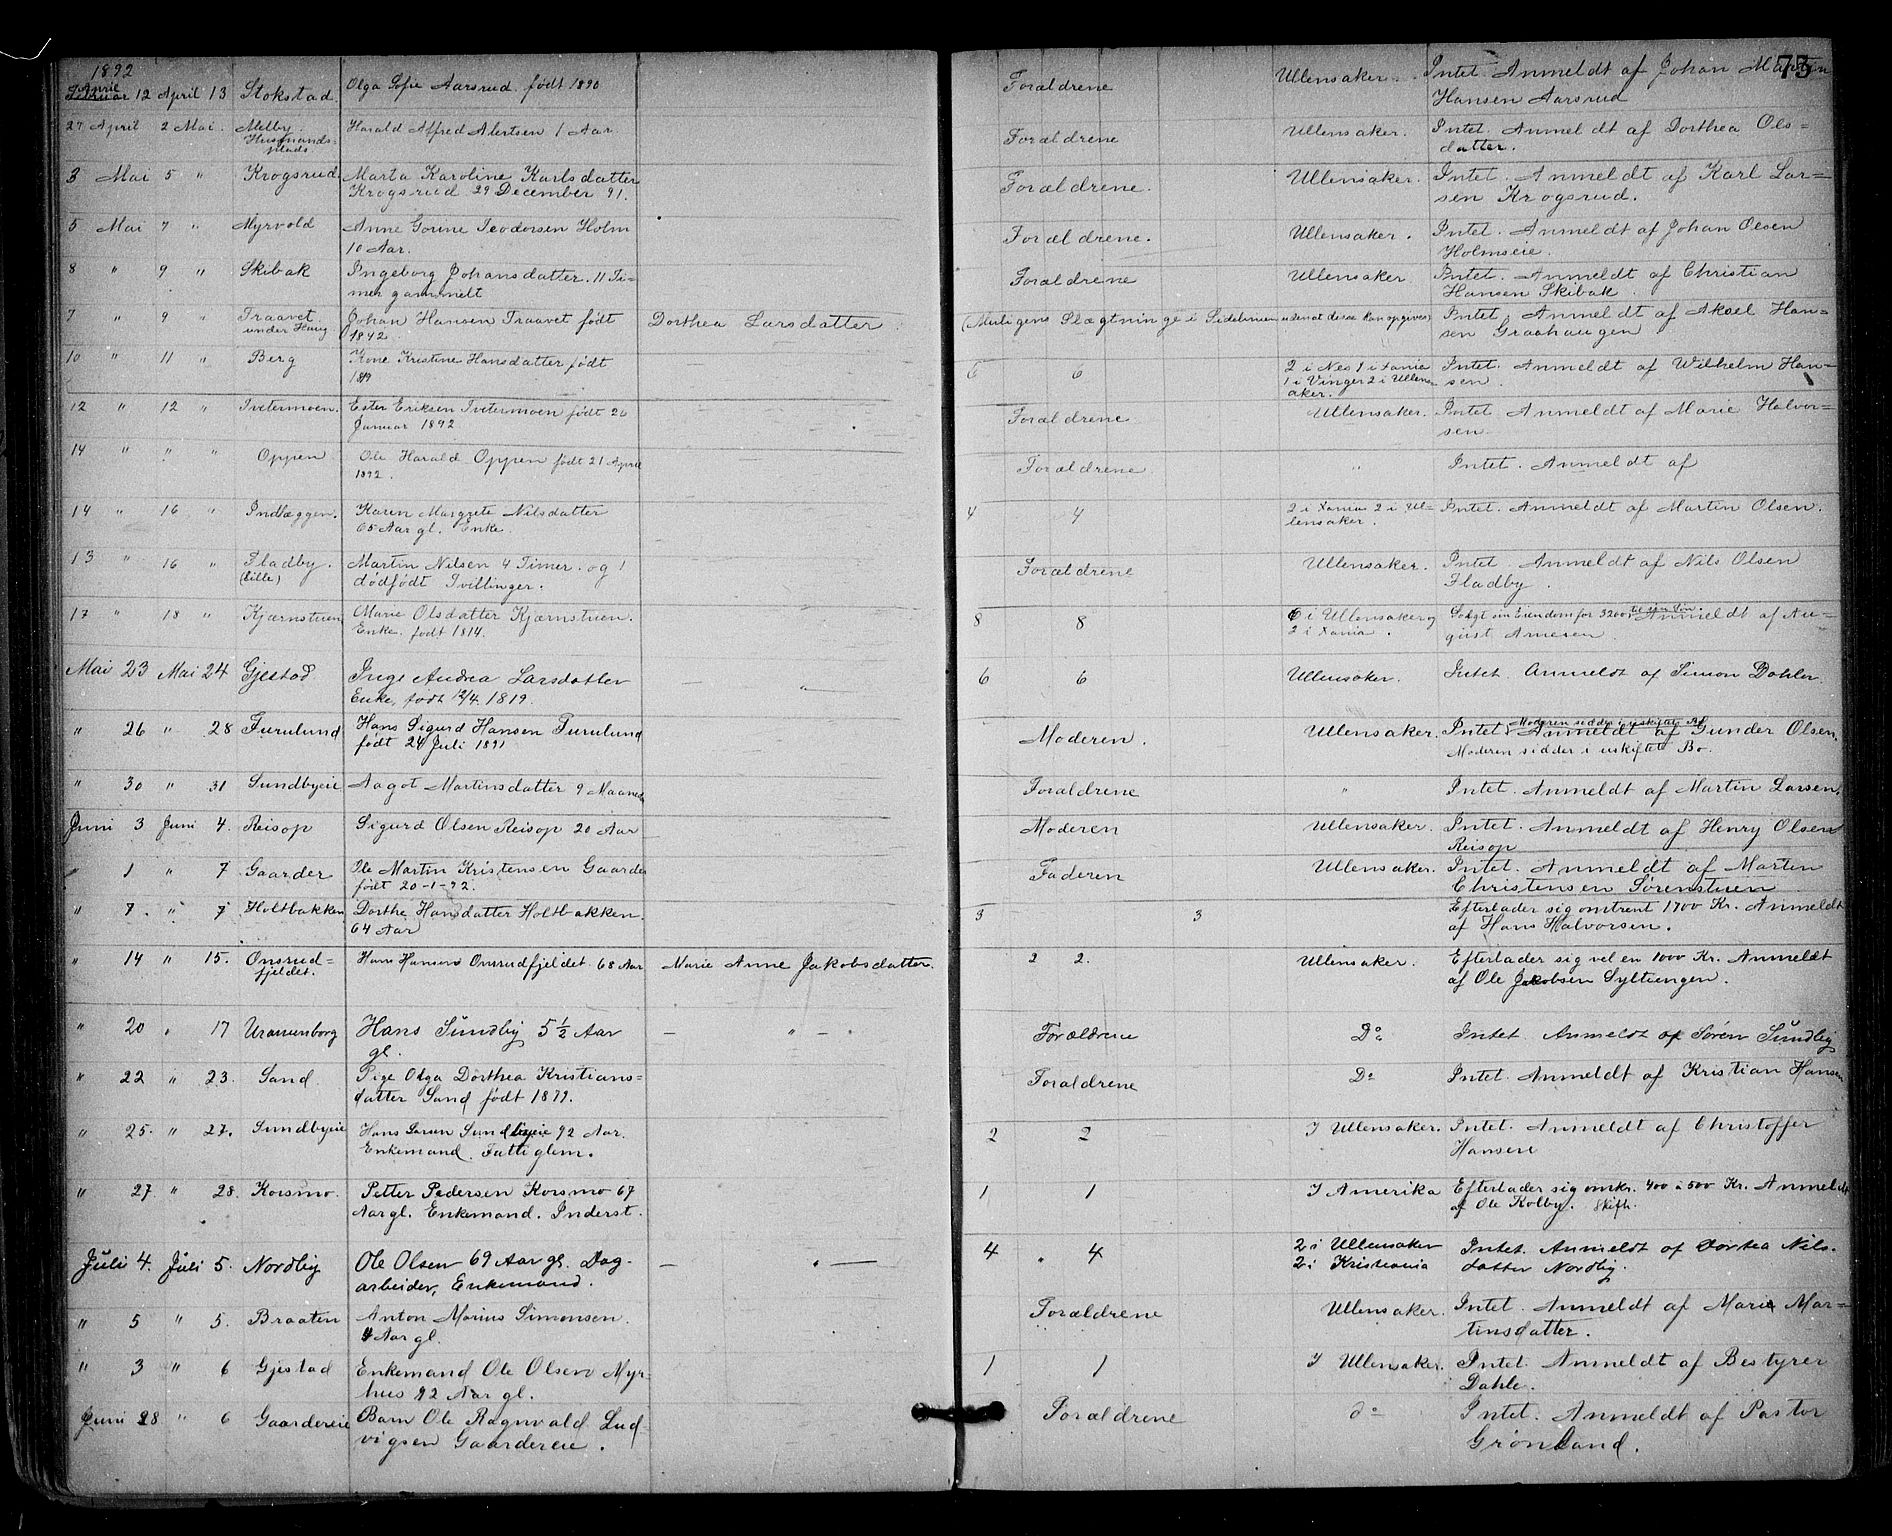 75
1892
April 12 April 13 Stokstad Olga Sofie Aarsrud født 1890 Forældrene Ullensaker Intet Anmeldt af Johan Martin
Februar
Hansen Aarsrud
27 April 2 Mai. Melby Harald Alfred Alertsen 1 Aar Forældrene Ullensaker. Intet. Anmeldt af Dorthea Ols=
Husmands= datter.
plads
3 Mai 5 " Krogsrud Marta Karoline Karlsdatter Forældrene. Ullensaker. Intet. Anmeldt af Karl Lar=
Krogsrud 29 December 91. sen Krogsrud.
5 Mai 7 " Myrvold Anne Gorine Teodorsen Holm Forældrene. Ullensaker. Intet. Anmeldt af Johan Olsen
10 Aar. Holmseie.
8 " 9 " Skibak Ingeborg Johansdatter. 11 Ti= Forældrene Ullensaker. Intet. Anmeldt af Christian
mer gammelt Hansen Skibak
7 " 9 " Traavet Johan Hansen Traavet født Dorthea Larsdatter. (Muligens Slægtninge i Sidelinien uden at disse kan opgives) Intet. Anmeldt af Aksel Han=
under Haug 1842. sen Graahaugen
10 " 11 " Berg Kone Kristine Hansdatter født 6 6 2 i Nes 1 i Xania Intet. Anmeldt af Wilhelm Han=
1819 1 i Vinger 2 i Ullens= sen.
aker.
12 " 12 " Tveitermoen. Ester Eriksen Tveitermoen født 20 Forældrene Ullensaker. Intet. Anmeldt af Marie Halvor=
Januar 1892 sen
14 " " " Oppen Ole Harald Oppen født 21 April Forældrene " Intet. Anmeldt af
1892.
14 " 16 " Indlæggen. Karen Margrete Nilsdatter 4 4 2 i Xania 2 i Ul= Intet. Anmeldt af Martin Olsen.
65 Aar gl. Enke. lensaker.
13 " 16 " Fladby. Martin Nilsen 4 Timer. og 1 Forældrene Ullensaker. Intet. Anmeldt af Nils Olsen
(Lille) dødfødt Tvillinger. Fladby.
17 " 18 " Kjærnstuen Marie Olsdatter Kjærnstuen. 8 8 6 i Ullensaker og Solgt sin Eiendom for 3200 til sin Søn. Anmeldt af Au=
Enke. født 1814. 2 i Xania. gust Arnesen.
Mai 23 Mai 24 Gjestad Inge Andrea Larsdatter — " 6 6 Ullensaker. Intet. Anmeldt af Simon Dahler.
Enke, født 12/4. 1819.
" 26 " 28 Furulund Hans Sigurd Hansen Furulund Moderen. Ullensaker. Intet. Anmeldt af Gunder Olsen.
født 24 Juli 1891 Moderen sidder i uskiftet Bo.
" 30 " 31 Sundbyeie Aagot Martinsdatter 9 Maaneder Forældrene " Intet. Anmeldt af Martin Larsen.
Juni 3 Juni 4. Reisop Sigurd Olsen Reisop 20 Aar Moderen Ullensaker. Intet. Anmeldt af Henry Olsen
Reisop
" 1 " 7 Gaarder Ole Martin Kristensen Gaarder Faderen Ullensaker. Intet. Anmeldt af Martin
født 20-1-92. Christensen Sørenstuen
" 7. " 7 Holtbakken Dorthe Hansdatter Holtbakken. 3 3 Efterlader sig omtrent 1700 Kr. Anmeldt
64 Aar af Hans Halvorsen.
" 14 " 15. Onsrud= Hans Hansen Onsrudfjeldet. 68 Aar Marie Anne Jakobsdatter. 2 2. Ullensaker. Efterlader sig vel en 1000 Kr. Anmeldt
fjeldet. af Ole Jakobsen Syltengen.
" 20 " 17 Uranienborg Hans Sundby 5 ½ Aar — " — Forældrene Do Intet. Anmeldt af Søren Sundby
gl.
" 22 " 23. Sand. Pige Olga Dorthea Kristians= Forældrene Do Intet. Anmeldt af Kristian Hansen
datter Sand født 1877.
" 25. " 27. Sundbyeie Hans Larsen Sundbyeie 92 Aar. 2 2 I Ullensaker. Intet. Anmeldt af Christoffer
Enkemand. Fattiglem. Hansen
" 27. " 28. Korsmo. Petter Pedersen Korsmo 67 1 1 I Amerika Efterlader sig omkr. 400 à 500 Kr. Anmeldt
Aar gl. Enkemand. Inderst. af Ole Kolby. Skifte.
Juli 4. Juli 5. Nordby Ole Olsen 69 Aar gl. Dag- — " — 4 " 4 2 i Ullensaker Intet. Anmeldt af Dortea Nils-
arbeider, Enkemand. 2 i Kristiania datter Nordby.
" 5 " 5. Braaten Anton Marius Simonsen. Forældrene Ullensaker. Intet. Anmeldt af Marie Mar=
4 Aar gl. tinsdatter.
" 3 " 6 Gjestad Enkemand Ole Olsen Myr= 1 1 I Ullensaker. Intet. Anmeldt af Bestyrer
hus 92 Aar gl. Dahle.
Juni 28 " 6 Gaardereie Barn Ole Ragnvald Lud= Forældrene do Intet. Anmeldt af Pastor
vigsen Gaardereie. Grønland.